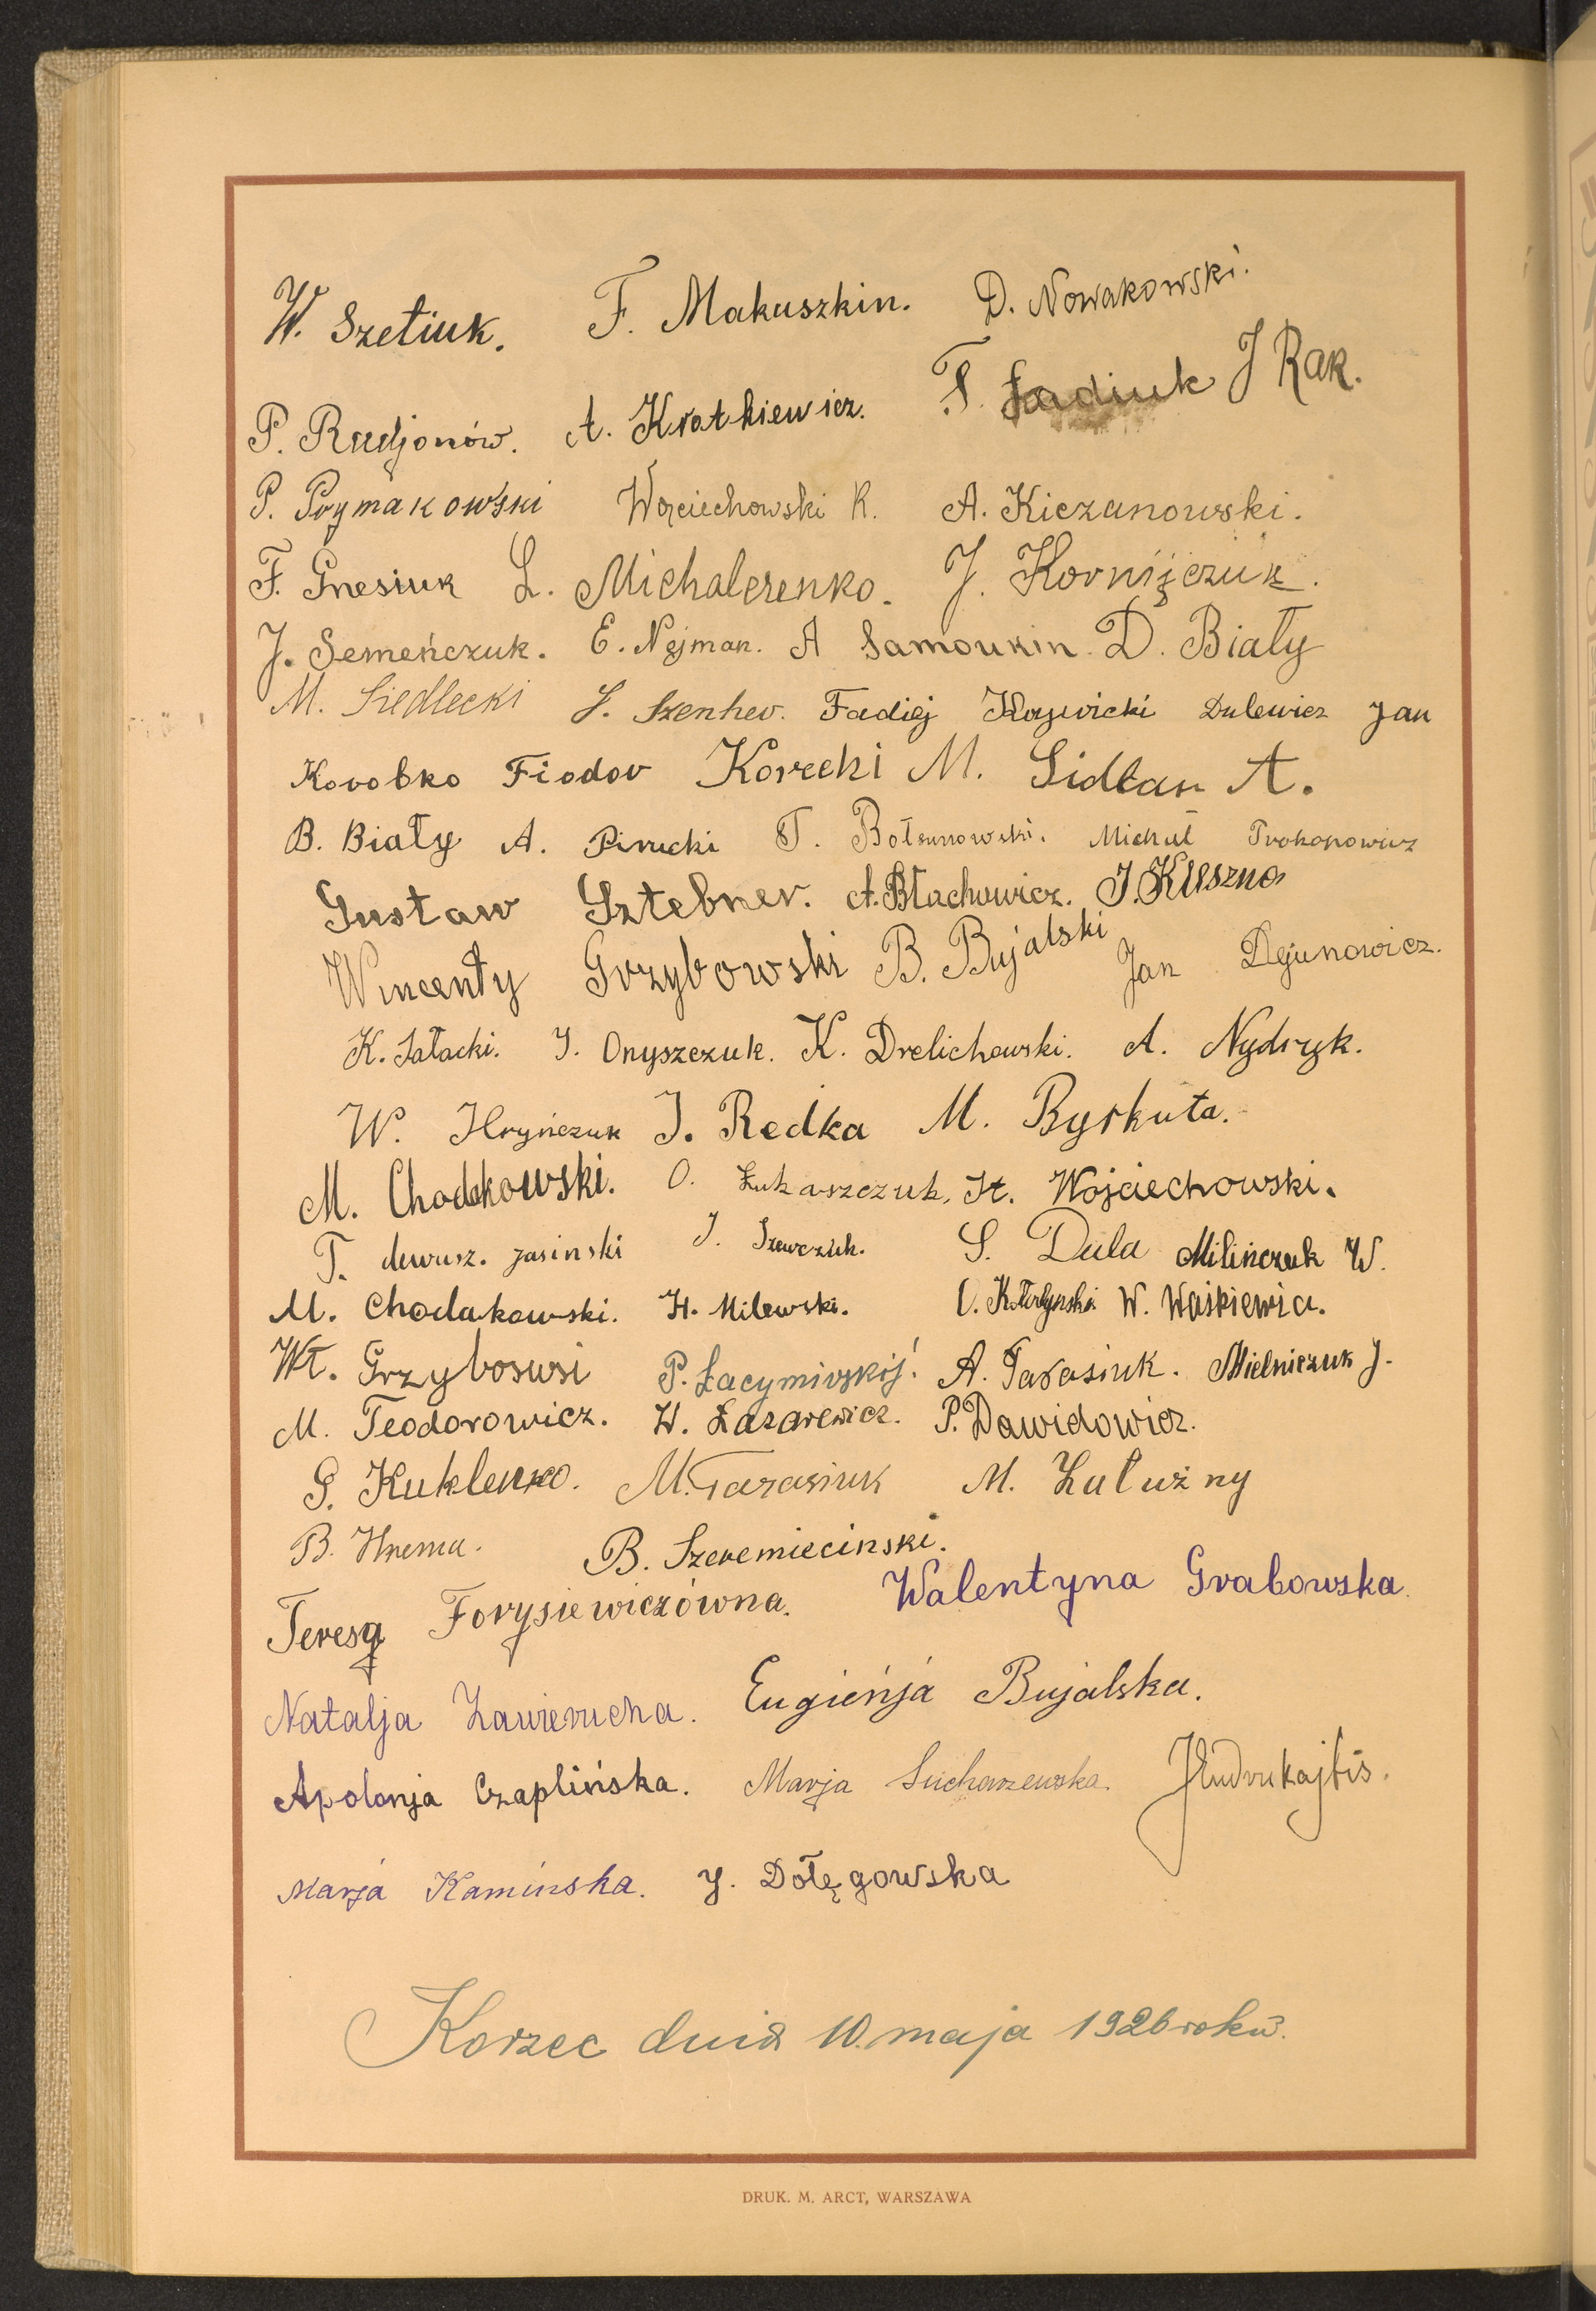 W. Szetiuk. F. Makuszkin. D. Nowakowski.
P. Radjonów. A. Kratkiewicz. F. Ładiuk J Rak.
P. Prymakowski Wojciechowski R. A. Kiczanowski.
F. Gnesiuk L. Michalczenko. J. Kornijczuk.
J. Semeńczuk. E. Nejman. A Samoukin. D. Biały
M. Siedlecki J. Szenher. Fadiej Klasewicki Dulewicz Jan
Korobko Fiodor Korecki M. Sidlar A.
B. Biały A. Pirucki T. Bołsunowski. Michał Prokopowicz
Gustaw Sztebner. A. Błachowicz. J. Kuszna
Wincenty Grzybowski B. Bujalski Jan Dejunowicz.
K. Sałacki. J. Onyszczuk. K. Drelichowski. A. Nydryk.
W. Hryńczuk J. Redka M. Byrkuta.
M. Chodakowski. O. Łukaszczuk. St. Wojciechowski.
T. deusz. Jasinski J. Szewczuk. S. Dula Milińczuk W.
M. Chodakowski. H. Milewski. W. Waśkiewicz.
Wł. Grzybosusi P. Łacymirskij. A. Tarasiuk. Mielniczuk J.
M. Teodorowicz. W. Łazarewicz. P. Dawidowicz.
G. Kuklenko. M. Tarasiuk M. Załużny
B. Hnema. B. Szeremiecinski.
Teresa Forysiewiczówna. Walentyna Grabowska.
Natalja Zawierucha. Eugienja Bujalska.
Apolonja Czaplińska. Marja Sucharzewska.
Marja Kamińska. J. Dołęgowska
Korzec dnia 10. maja 1926 roku.
DRUK. M. ARCT, WARSZAWA